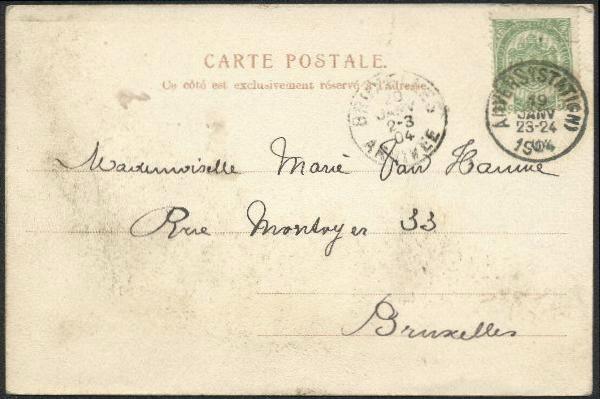 CARTE POSTALE.
Ce côté est exclusivement réservé à l'adresse.
BRUXELLES
JANV
2-3
04
ARRIVÉE
ANVERS (STATION)
19
JANV
23-24
1904
Mademoiselle Marie Van Hamme
Rue Montoyer 33
Bruxelles